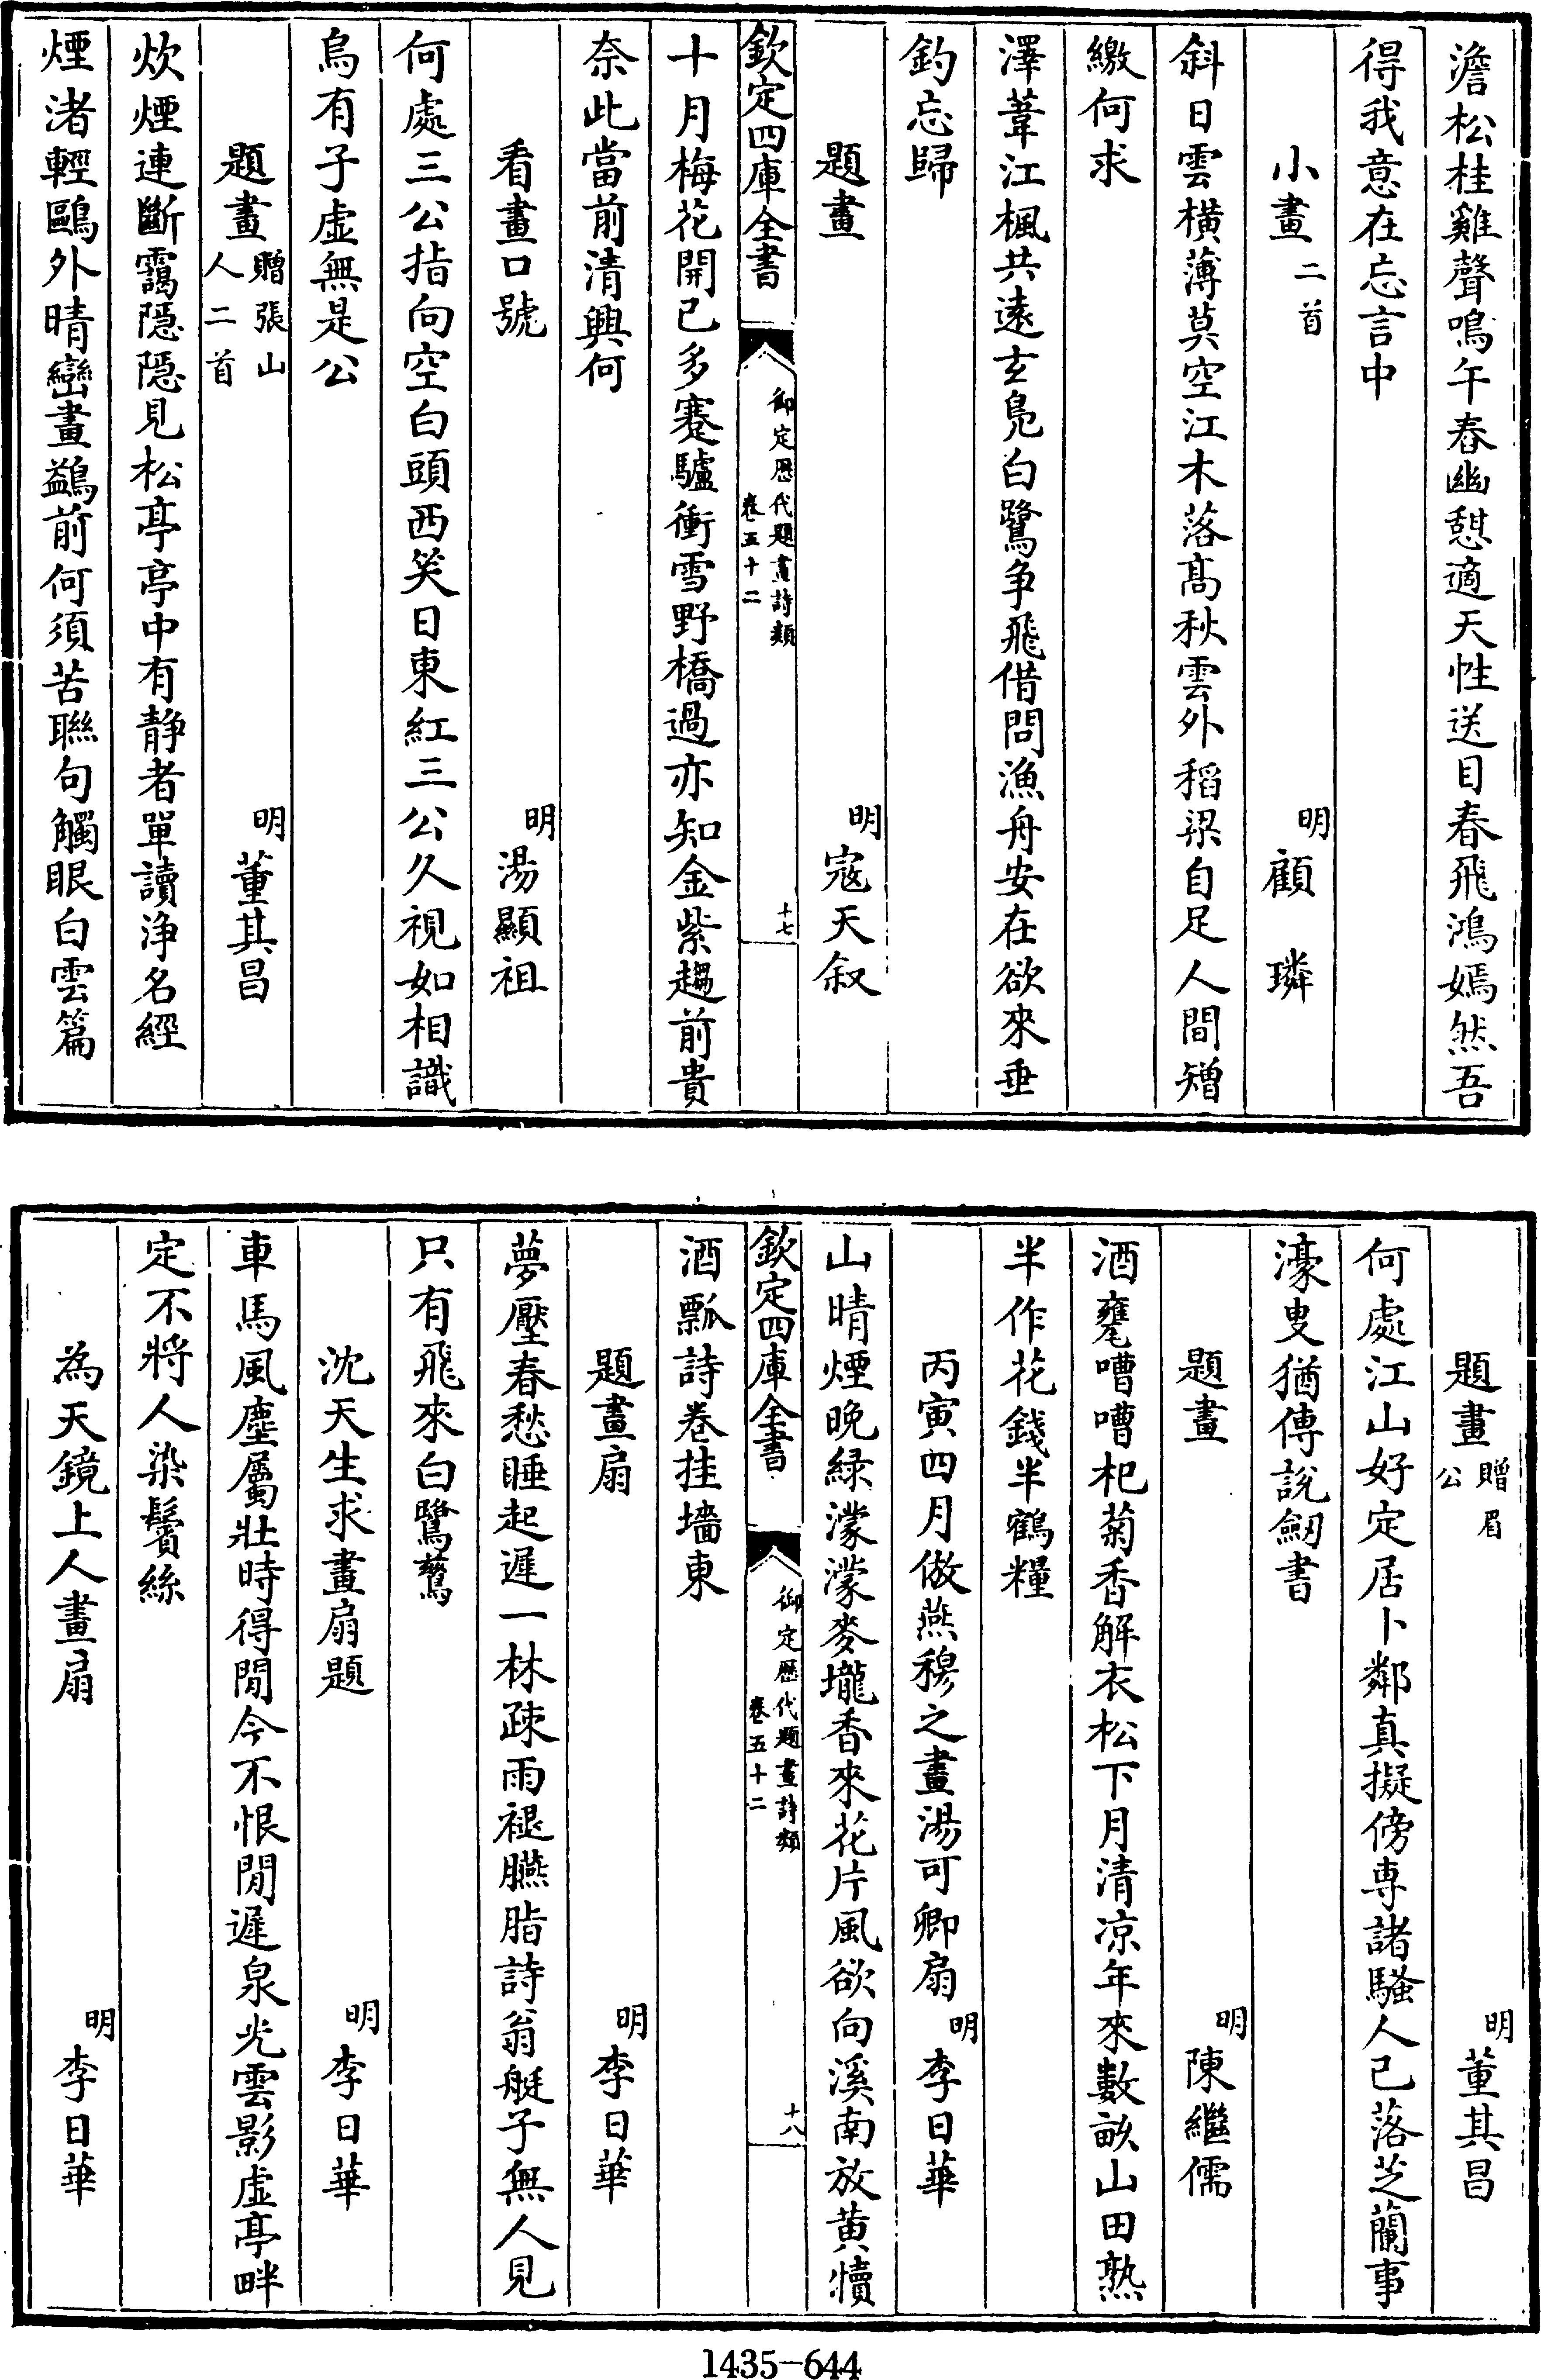 澹松桂雞聲鳴午舂幽憩適天性送目春飛鴻嫣然吾
得我意在忘言中
小畫二首 明 顧璘
斜日雲橫薄莫空江木落高秋雲外稻梁自足人間矰
繳何求
澤葦江楓共遠玄鳧白鷺争飛借問漁舟安在欲來垂
釣忘歸
題畫 明 寇天叙
欽定四庫全書 御定歷代題畫詩類 卷五十二 十七
十月梅花開已多蹇驢衝雪野橋過亦知金紫趨前貴
奈此當前清興何
看畫口號 明 湯顯祖
何處三公指向空白頭西笑日東紅三公久視如相識
烏有子虛無是公
題畫贈張山人二首 明 董其昌
炊煙連斷靄隱隱見松亭亭中有静者單讀浄名經
煙渚輕鷗外晴巒畫鷁前何須苦聯句觸眼白雲篇
題畫贈眉公 明 董其昌
何處江山好定居卜鄰真擬傍専諸騷人已落芝蘭事
濠叟猶傳說劒書
題畫 明 陳繼儒
酒甕嘈嘈杞菊香解衣松下月清凉年來數畝山田熟
半作花錢半鶴糧
丙寅四月倣燕穆之畫湯可卿扇 明 李日華
山晴煙晚緑濛濛麥壠香來花片風欲向溪南放黄犢
欽定四庫全書 御定歷代題畫詩類 卷五十二 十八
酒瓢詩卷挂墻東
題畫扇 明 李日華
夢壓春愁睡起遲一林疎雨褪臙脂詩翁艇子無人見
只有飛來白鷺鷥
沈天生求畫扇題 明 李日華
車馬風塵屬壯時得閒今不恨閒遲泉光雲影虛亭畔
定不將人染鬢絲
為天鏡上人畫扇 明 李日華
1435-644